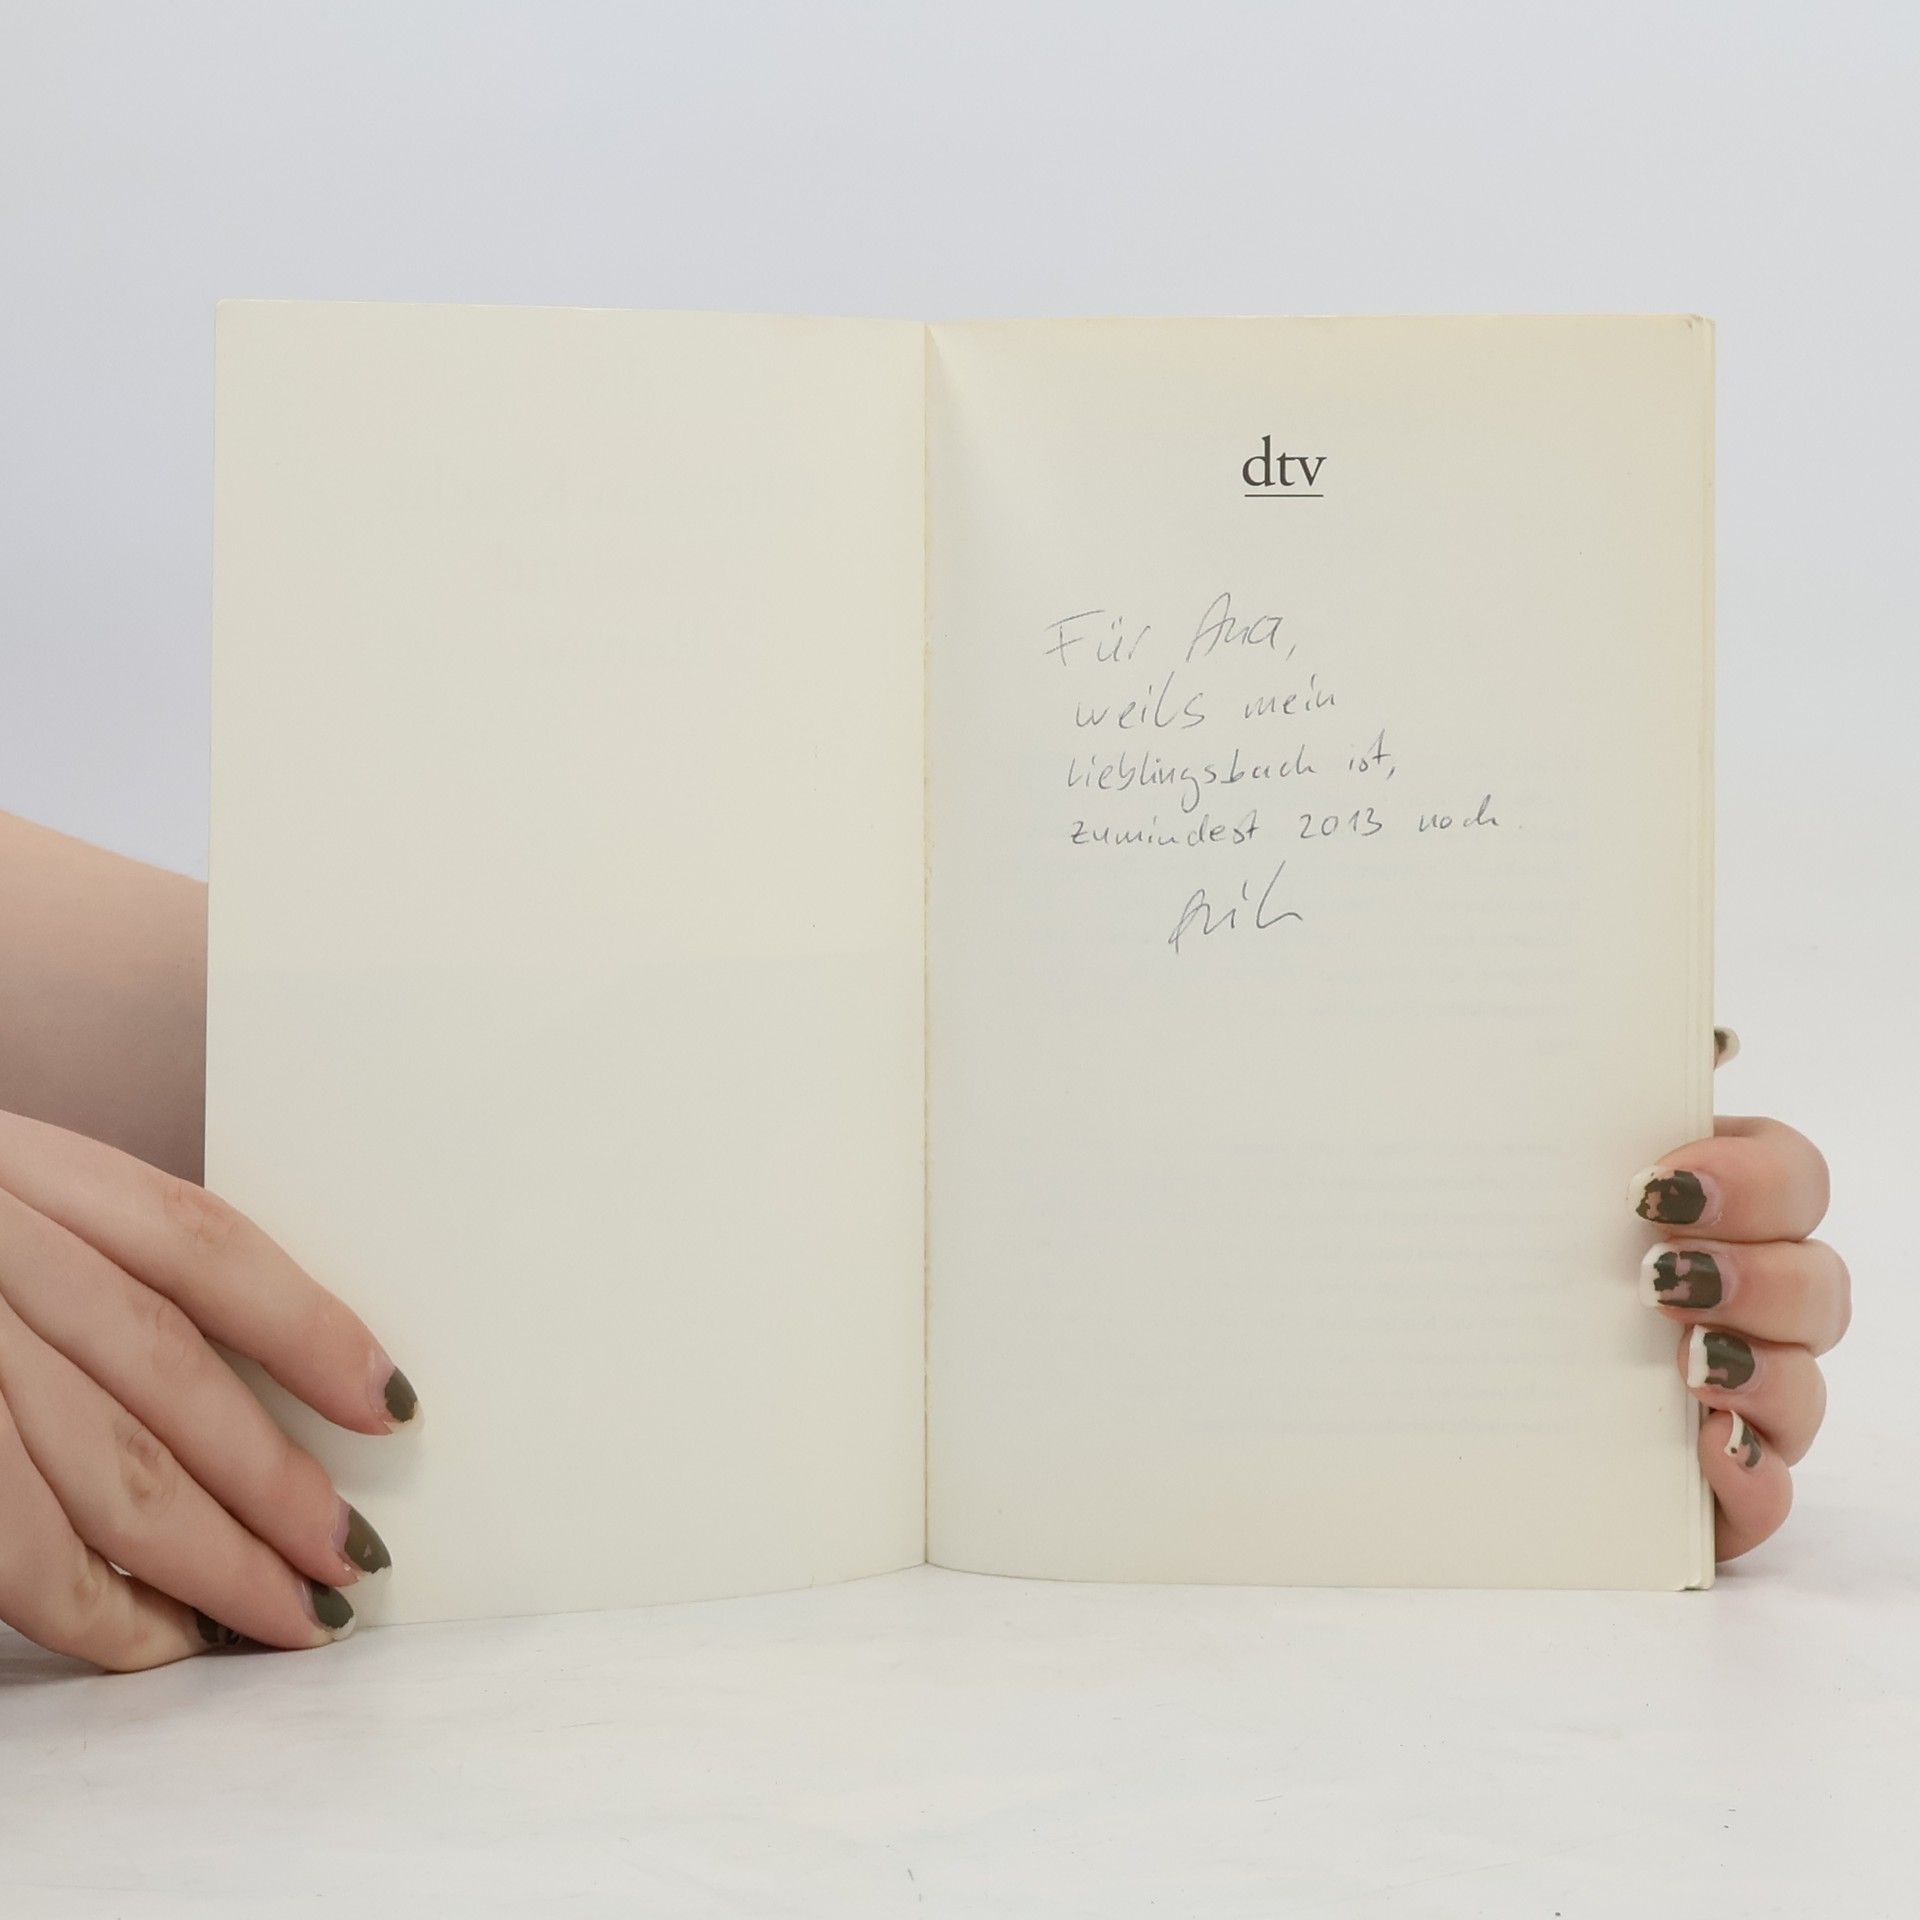 dtv
Für Ana,
weils mein
Lieblingsbuch ist,
zumindest 2013 noch.